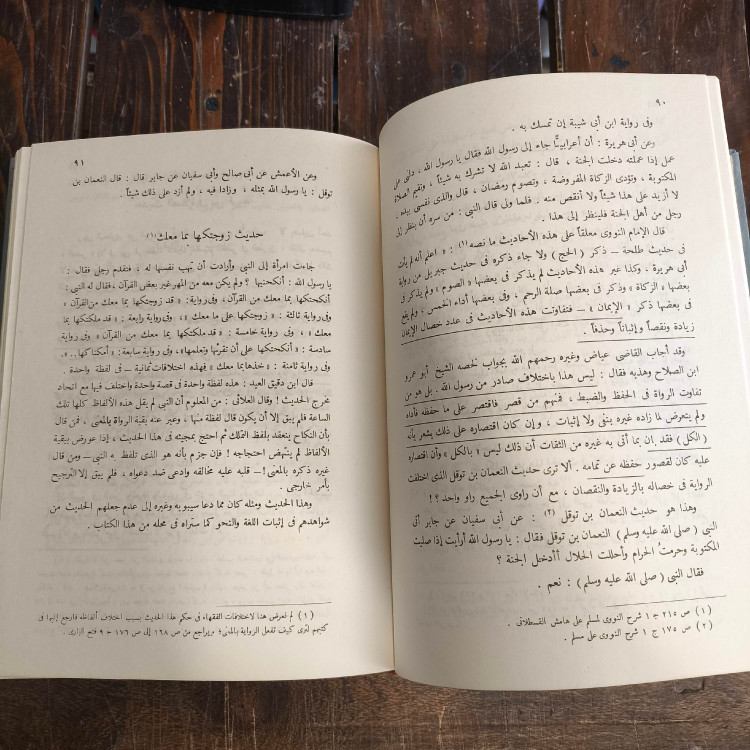 ٩٠
وفى رواية ابن أبى شيبة إن تمسك به .
وعن أبى هريرة : أن أعرابيًّا جاء إلى رسول الله فقال يا رسول الله ، دلنى على
عمل إذا عملته دخلت الجنة ، قال : تعبد الله لا تشرك به شيئاً ، وتقيم الصلاة
المكتوبة ، وتؤدى الزكاة المفروضة ، وتصوم رمضان ، قال والذى نفسى بيده ،
لا أزيد على هذا شيئاً ولا أنقص منه . فلما ولى قال النبى : من سره أن ينظر إلى
رجل من أهل الجنة فلينظر إلى هذا .
قال الإمام النووى معلقاً على هذه الأحاديث ما نصه (١) : « اعلم أنه لم يأت
فى حديث طلحة – ذكر ( الحج ) ولا جاء ذكره فى حديث جبريل من رواية
أبى هريرة ، وكذا غير هذه الأحاديث لم يذكر فى بعضها « الصوم » ولم يذكر فى
بعضها « الزكاة » وذكر فى بعضها صلة الرحم ، وفى بعضها أداء الخمس ، ولم يقع
فى بعضها ذكر « الإيمان » – فتفاوتت هذه الأحاديث فى عدد خصال الإيمان
زيادة ونقصاً وإثباتاً وحذفاً .
وقد أجاب القاضى عياض وغيره رحمهم الله بجواب لخصه الشيخ أبو عمرو
ابن الصلاح وهذبه فقال : ليس هذا باختلاف صادر من رسول الله . بل هو من
تفاوت الرواة فى الحفظ والضبط ، فمنهم من قصر فاقتصر على ما حفظه فأداه
ولم يتعرض لما زاده غيره بنفى ولا إثبات ، وإن كان اقتصاره على ذلك يشعر بأنه
( الكل ) فقد بان بما أتى به غيره من الثقات أن ذلك ليس « بالكل » وأن اقتصاره
عليه كان لقصور حفظه عن تمامه . ألا ترى حديث النعمان بن توقل الذى اختلفت
الرواية فى خصاله بالزيادة والنقصان ، مع أن راوى الجميع راو واحد ؟ !
وهذا هو حديث النعمان بن توقل (٢) : عن أبى سفيان عن جابر أتى
النبى ( صلى الله عليه وسلم ) النعمان بن توقل فقال : يا رسول الله أرأيت إذا صليت
المكتوبة وحرمتُ الحرام وأحللت الحلال أأدخل الجنة ؟
فقال النبى ( صلى الله عليه وسلم ) : نعم .
( ١ ) ص ٢١٥ ج ١ شرح النووى لمسلم على هامش القسطلانى .
( ٢ ) ص ١٧٥ ج ١ شرح النووى على مسلم .
٩١
وعن الأعمش عن أبى صالح وأبى سفيان عن جابر قال : قال النعمان بن
توقل : يا رسول الله بمثله ، وزادا فيه ، ولم أزد على ذلك شيئاً .
حديث زوجتكها بما معك (١)
جاءت امرأة إلى النبى وأرادت أن تهب نفسها له ، فتقدم رجل فقال :
يا رسول الله : أنكحنيها ؟ ولم يكن معه من المهر غير بعض القرآن ، فقال له النبى :
أنكحتكها بما معك من القرآن ، وفى رواية : « قد زوجتكها بما معك من القرآن »
وفى رواية ثالثة : « زوجتكها على ما معك » ، وفى رواية رابعة : « قد ملكتكها بما
معك » ، وفى رواية خامسة : « قد ملكتكها بما معك من القرآن » وفى رواية
سادسة : « أنكحتكها على أن تقرئها وتعلمها » ، وفى رواية سابعة : « أمكناكها .. » .
وفى رواية ثامنة : « خذها بما معك » فهذه اختلافات ثمانية – فى لفظة واحدة .
قال ابن دقيق العيد : هذه لفظة واحدة فى قصة واحدة واختلف فيها مع اتحاد
مخرج الحديث ! وقال العلائى : من المعلوم أن النبى لم يقل هذه الألفاظ كلها تلك
الساعة فلم يبق إلا أن يكون قال لفظة منها ، وعبر عنه بقية الرواة بالمعنى ، فمن قال
بأن النكاح ينعقد بلفظ التملك ثم احتج بمجيئه فى هذا الحديث ، إذا عورض ببقية
الألفاظ لم ينتهض احتجاجه ! فإن جزم بأنه هو الذى تلفظ به النبى – ومن قال
غيره ذكره بالمعنى ! – قلبه عليه مخالفه وادعى ضد دعواه ، فلم يبق إلا الترجيح
بأمر خارجى .
وهذا الحديث ومثله كان مما دعا سيبويه وغيره إلى عدم جعلهم الحديث من
شواهدهم فى إثبات اللغة والنحو كما ستراه فى محله من هذا الكتاب .
( ١ ) لم نعرض هنا لاختلافات الفقهاء فى حكم هذا الحديث بسبب اختلاف ألفاظه فارجع إليها فى
كتبهم لترى كيف تفعل الرواية بالمعنى ؛ ويراجع من ص ١٦٨ إلى ص ١٧٦ ج ٩ فتح البارى .